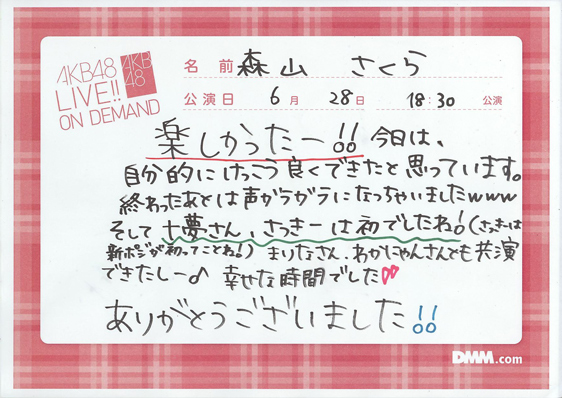 AKB48
LIVE!!
ON DEMAND
AKB
48
名 前 森山 さくら
公演日 6月 28日 18:30 公演
楽しかったー!! 今日は、
自分的にけっこう良くできたと思っています。
終わったあとは声がガラガラになっちゃいましたwww
そして十夢さん、さっきーは初でしたね!(さっきーは
新ポジが初ってことね!) まりなさん、わかにゃんさんとも共演
できたしー♪ 幸せな時間でした
ありがとうございました!!
DMM.com